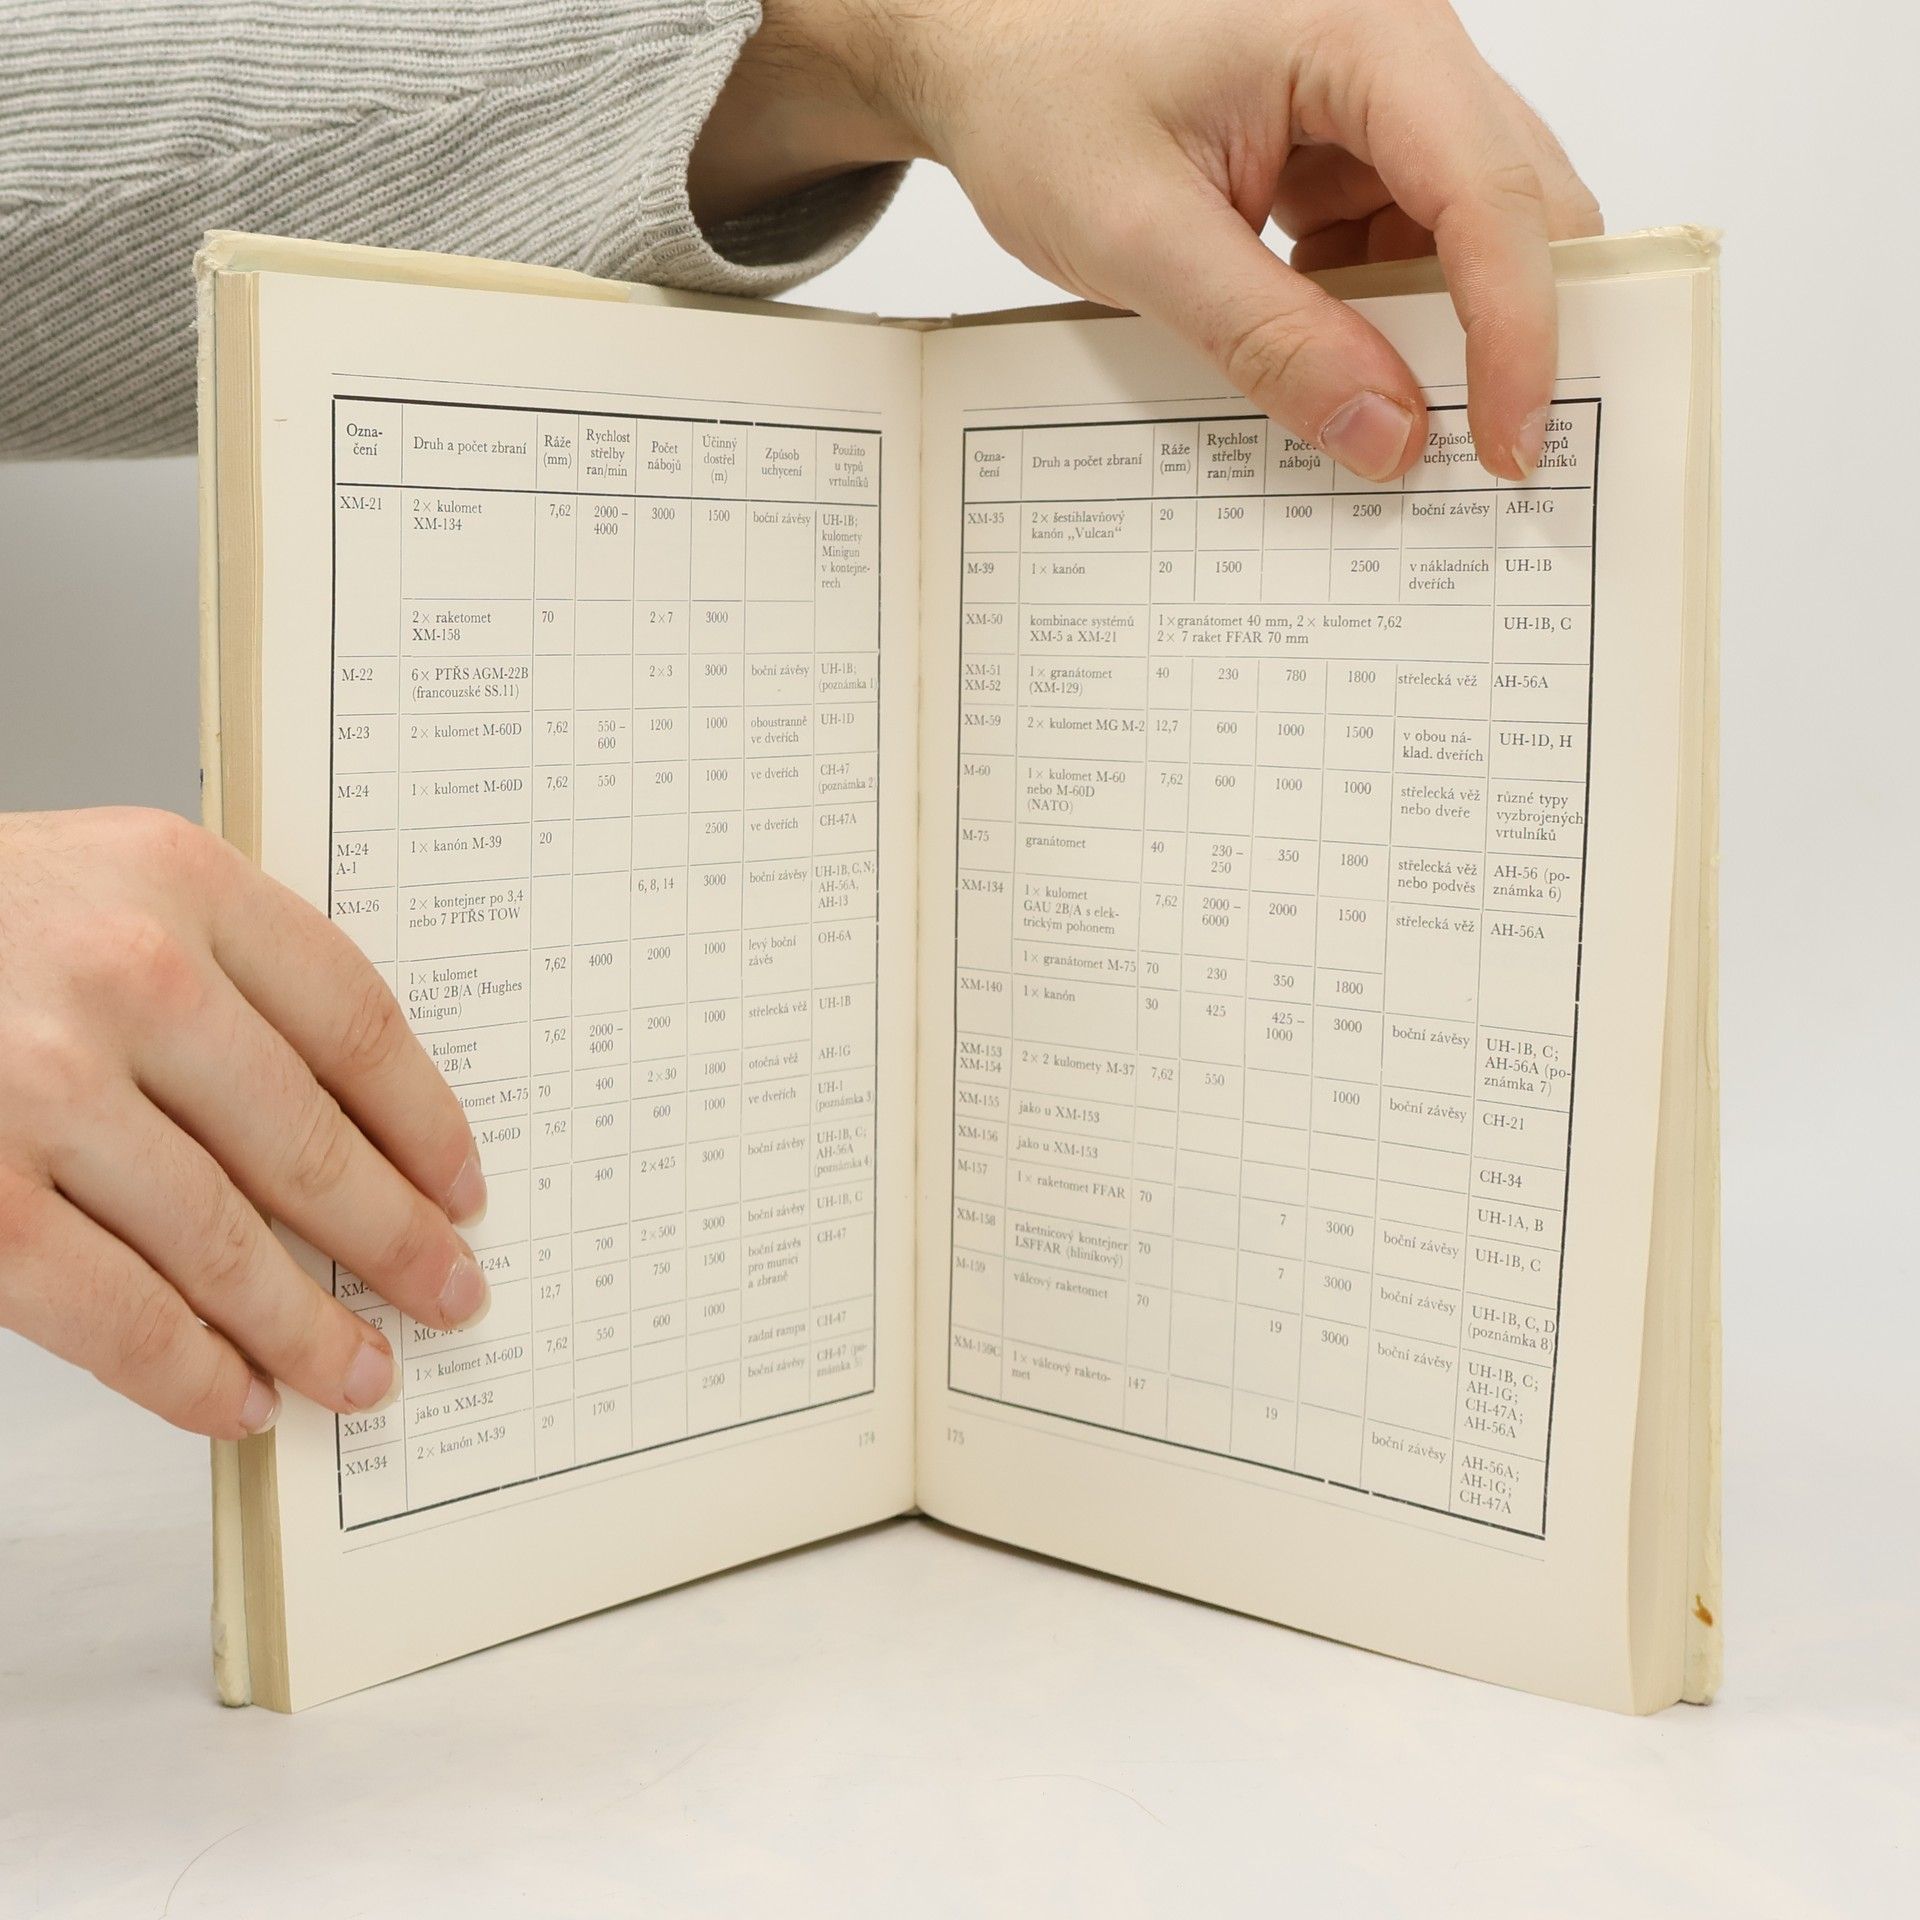 Ozna-
čení
Druh a počet zbraní
Ráže
(mm)
Rychlost
střelby
ran/min
Počet
nábojů
Účinný
dostřel
(m)
Způsob
uchycení
Použito
u typů
vrtulníků
XM-21
2× kulomet
XM-134
7,62
2000 –
4000
3000
1500
boční závěsy
UH-1B;
kulomety
Minigun
v kontejne-
rech
2× raketomet
XM-158
70
2×7
3000
M-22
6× PTŘS AGM-22B
(francouzské SS.11)
2×3
3000
boční závěsy
UH-1B;
(poznámka 1)
M-23
2× kulomet M-60D
7,62
550 –
600
1200
1000
oboustranně
ve dveřích
UH-1D
M-24
1× kulomet M-60D
7,62
550
200
1000
ve dveřích
CH-47
(poznámka 2)
M-24
A-1
1× kanón M-39
20
2500
ve dveřích
CH-47A
XM-26
2× kontejner po 3,4
nebo 7 PTŘS TOW
6, 8, 14
3000
boční závěsy
UH-1B, C, N;
AH-56A,
AH-13
1× kulomet
GAU 2B/A (Hughes
Minigun)
7,62
4000
2000
1000
levý boční
závěs
OH-6A
kulomet
2B/A
7,62
2000 –
4000
2000
1000
střelecká věž
UH-1B
átomet M-75
70
400
2×30
1800
otočná věž
AH-1G
M-60D
7,62
600
600
1000
ve dveřích
UH-1
(poznámka 3)
30
400
2×425
3000
boční závěsy
UH-1B, C;
AH-56A
(poznámka 4)
-24A
20
700
2×500
3000
boční závěsy
UH-1B, C
XM-
32
MG M-
12,7
600
750
1500
boční závěs
pro munici
a zbraně
CH-47
1× kulomet M-60D
7,62
550
600
1000
XM-33
jako u XM-32
zadní rampa
CH-47
XM-34
2× kanón M-39
20
1700
2500
boční závěsy
CH-47 (po-
známka 5)
174
Ozna-
čení
Druh a počet zbraní
Ráže
(mm)
Rychlost
střelby
ran/min
Počet
nábojů
Způsob
uchycení
žito
typů
ulníků
XM-35
2× šestihlavňový
kanón „Vulcan“
20
1500
1000
2500
boční závěsy
AH-1G
M-39
1× kanón
20
1500
2500
v nákladních
dveřích
UH-1B
XM-50
kombinace systémů
XM-5 a XM-21
1×granátomet 40 mm, 2× kulomet 7,62
2× 7 raket FFAR 70 mm
UH-1B, C
XM-51
XM-52
1× granátomet
(XM-129)
40
230
780
1800
střelecká věž
AH-56A
XM-59
2× kulomet MG M-2
12,7
600
1000
1500
v obou ná-
klad. dveřích
UH-1D, H
M-60
1× kulomet M-60
nebo M-60D
(NATO)
7,62
600
1000
1000
střelecká věž
nebo dveře
různé typy
vyzbrojených
vrtulníků
M-75
granátomet
40
230 –
250
350
1800
střelecká věž
nebo podvěs
AH-56 (po-
známka 6)
XM-134
1× kulomet
GAU 2B/A s elek-
trickým pohonem
7,62
2000 –
6000
2000
1500
střelecká věž
AH-56A
1× granátomet M-75
70
230
350
1800
XM-140
1× kanón
30
425
425 –
1000
3000
boční závěsy
UH-1B, C;
AH-56A (po-
známka 7)
XM-153
XM-154
2× 2 kulomety M-37
7,62
550
1000
boční závěsy
CH-21
XM-155
jako u XM-153
CH-34
XM-156
jako u XM-153
UH-1A, B
M-157
1× raketomet FFAR
70
7
3000
boční závěsy
UH-1B, C
XM-158
raketnicový kontejner
LSFFAR (hliníkový)
70
7
3000
boční závěsy
UH-1B, C, D
(poznámka 8)
M-159
válcový raketomet
70
19
3000
boční závěsy
UH-1B, C;
AH-1G;
CH-47A;
AH-56A
XM-159C
1× válcový raketo-
met
147
19
boční závěsy
AH-56A;
AH-1G;
CH-47A
175